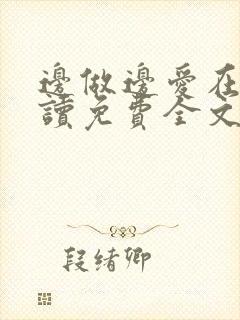 邊做邊愛在
讀免費全文
段绪卿